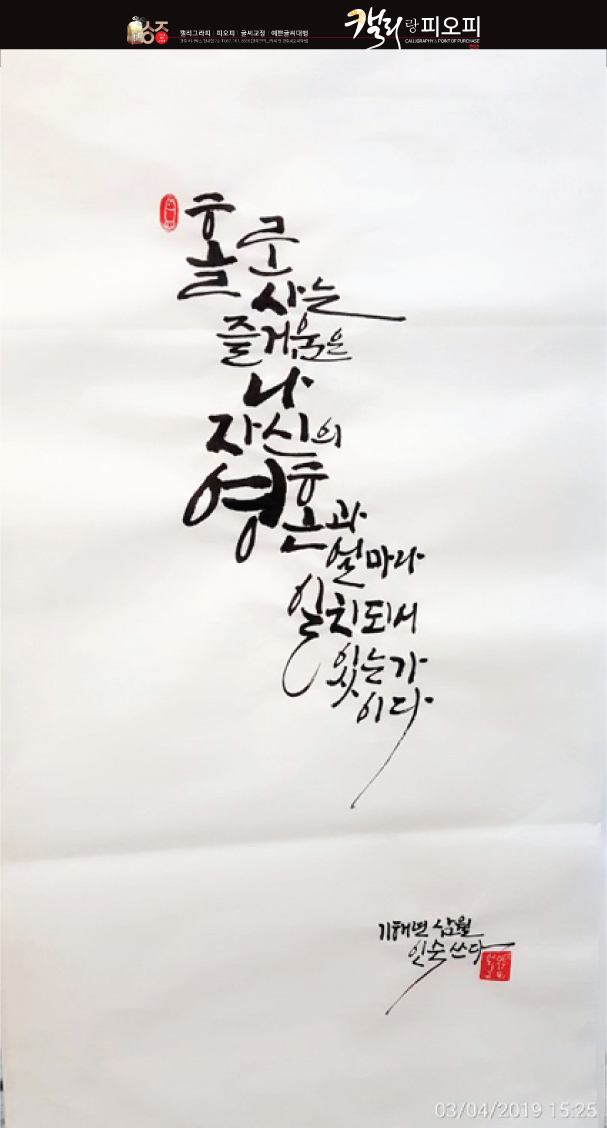 캘리그라피 | 피오피 | 글씨교정 | 예쁜글씨대범
캘리랑피오피
CALLIGRAPHY & POINT OF PURCHASE
홀로
사는
즐거움은
나
자신의
영혼과
얼마나
일치되서
있는가
이다
기해년 삼월
인숙 쓰다
03/04/2019 15:25